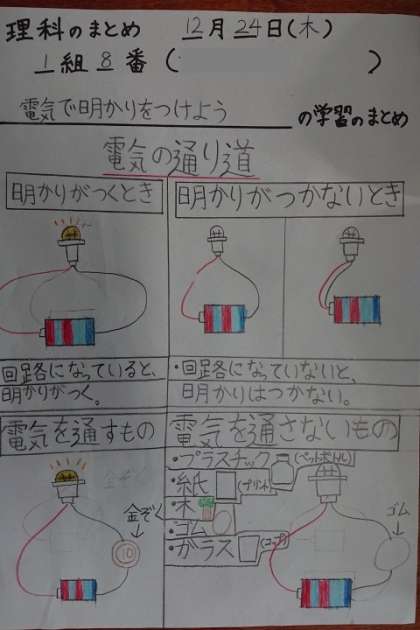 理科のまとめ 12月24日(木)
1組8番( )
電気で明かりをつけよう の学習のまとめ
電気の通り道
明かりがつくとき
明かりがつかないとき
回路になっていると、
明かりがつく。
・回路になっていないと、
明かりはつかない。
電気を通すもの
電気を通さないもの
金ぞく
10
・プラスチック(ペットボトル)
・紙(プリント)
・木
・ゴム
・ガラス(コップ)
ゴム